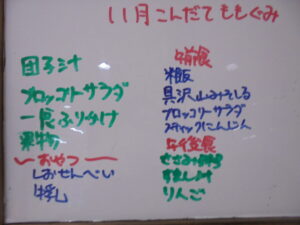 11月こんだて ももぐみ
団子汁
ブロッコリーサラダ
一食ふりかけ
果物
〜おやつ〜
しおせんべい
牛乳
午前食
米飯
具沢山みそしる
ブロッコリーサラダ
スティックにんじん
午後食
りんご